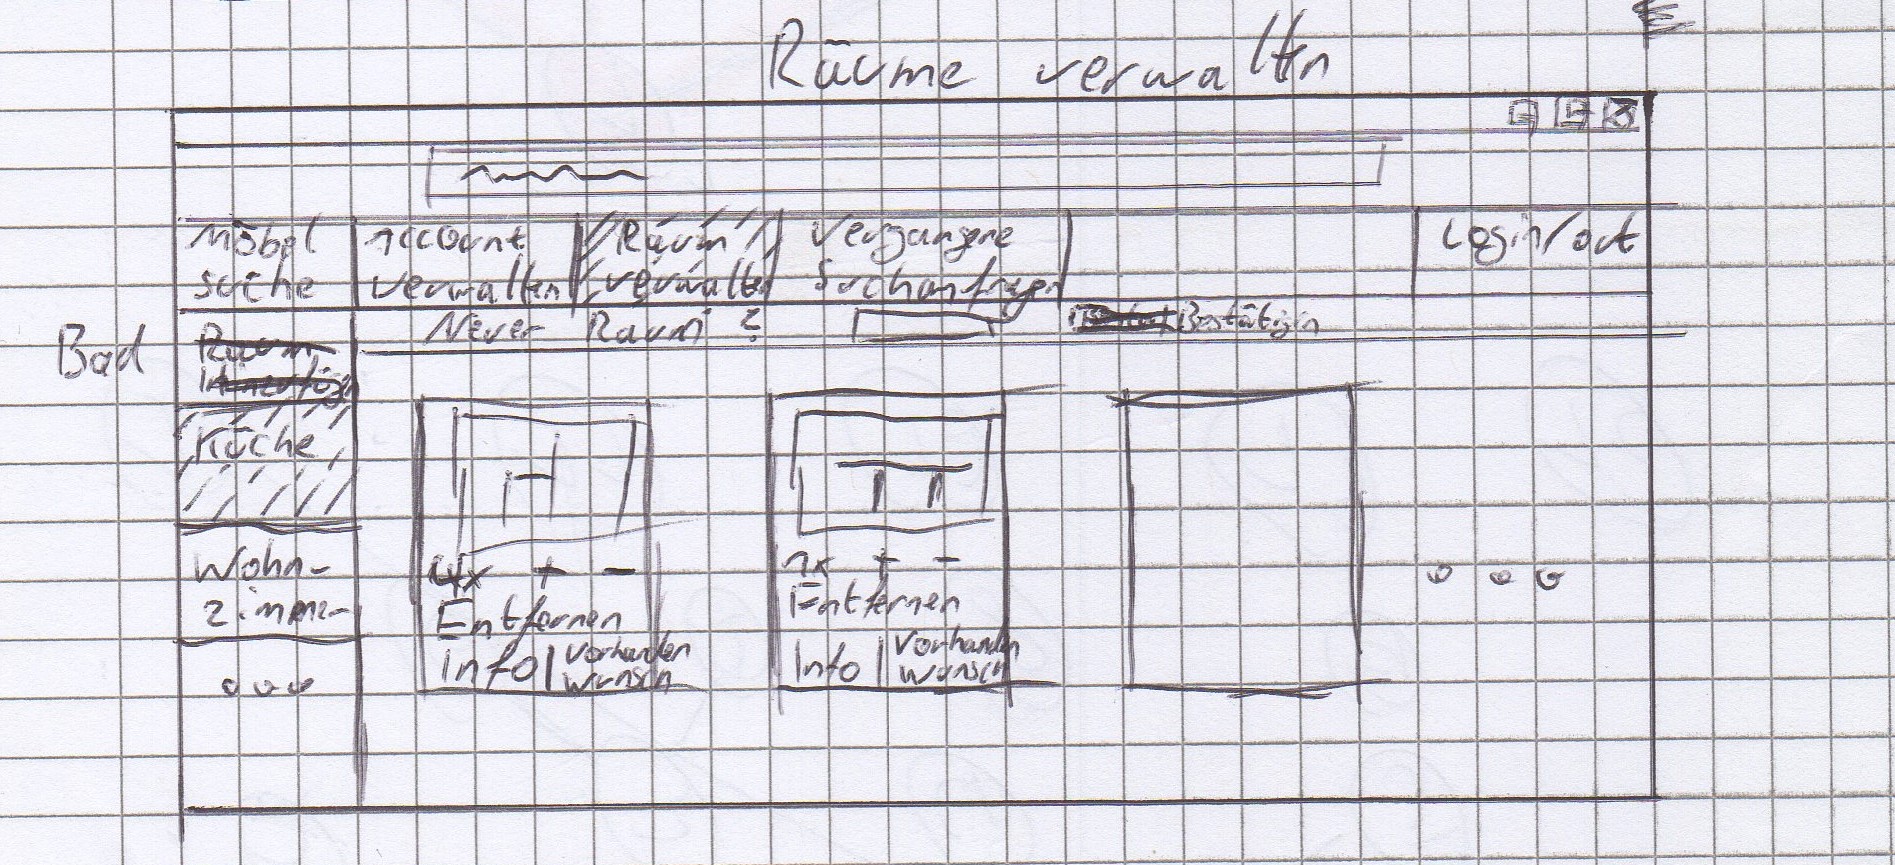 Räume verwalten
Möbel
suche
Account
verwalten
Raum
verwalten
Vergangene
Suchanfragen
Login/out
Neuer Raum ?
Bestätigen
Bad
Raum
Küche
Wohn-
zimmer
4x + -
Entfernen
Info | vorhanden
wunsch
1x + -
Entfernen
Info | vorhanden
wunsch